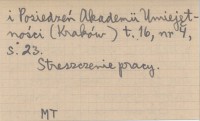 i Posiedzeń Akademii Umiejęt-
ności (Kraków) t. 16, nr 4,
s. 23.
Streszczenie pracy.
MT